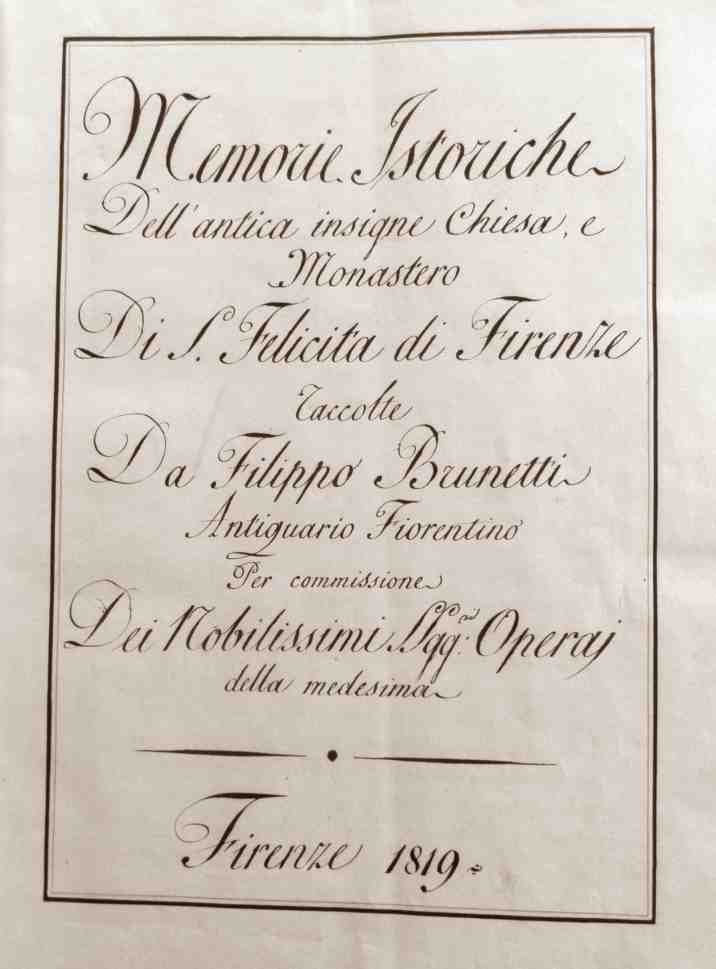 Memorie Istoriche
Dell'antica insigne Chiesa, e
Monastero
Di S. Felicita di Firenze
raccolte
Da Filippo Brunetti
Antiquario Fiorentino
Per commissione
Dei Nobilissimi SSigg:ri Operaj
della medesima
Firenze 1819.